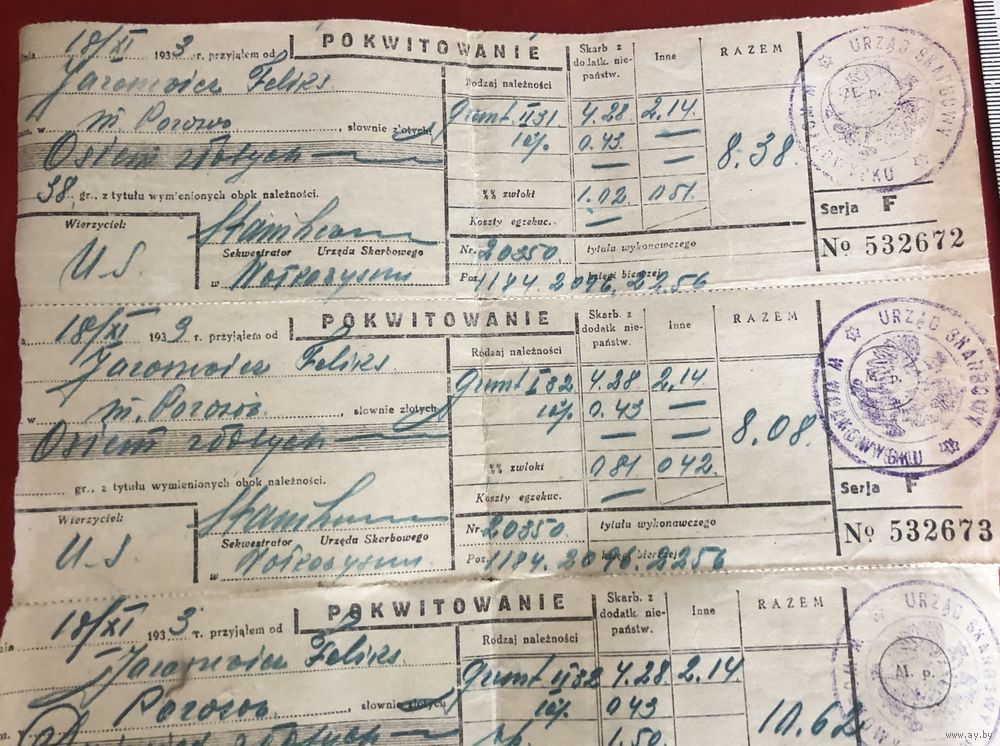 dnia 18/XI 1933 r. przyjąłem od
POKWITOWANIE
Skarb z dodatk. nie-państw.
Inne
RAZEM
Rodzaj należności
Jaromowicz Feliks
m. Porosowo, słownie złotych:
Osiem złotych
38 gr., z tytułu wymienionych obok należności.
Grunt II 31 4.28 2,14
10% 0.43 —
— —
%% zwłoki 1.02 0.51.
Koszty egzekuc. —
8.38.
URZĄD SKARBOWY
M. p.
Serja F
№ 532672
Wierzyciel:
U.S.
Sekwestrator Urzędu Skarbowego
w
Nr. 20350 tytułu wykonawczego
Poz. 1184 2096, 2256 księgi bierzej
18/XI 1933 r. przyjąłem od
POKWITOWANIE
Skarb. z dodatk nie-państw.
Inne
RAZEM
Rodzaj należności
Jaromowicz Feliks
w m. Porosowo, słownie złotych
Osiem złotych
gr., z tytułu wymienionych obok należności.
Grunt I 32 4.28 2,14
10% 0.43 —
— —
%% zwłoki 0.81 0.42.
Koszty egzekuc. —
8.08.
URZĄD SKARBOWY
Serja F
№ 532673
Wierzyciel:
U.S.
Sekwestrator Urzędu Skarbowego
w
Nr. 20350 tytułu wykonawczego
Poz. 1184. 2096. 2256 księgi bierzej
dnia 18/XI 1933 r. przyjąłem od
POKWITOWANIE
Skarb. z dodatk. nie-państw.
Inne
RAZEM
Rodzaj należności
Jaromowicz Feliks
Porosowo słownie złotych
Grunt II 32 4.28 2,14
10% 043
1.50
10.62
URZĄD SKARBOWY
M. p.
www.ay.by